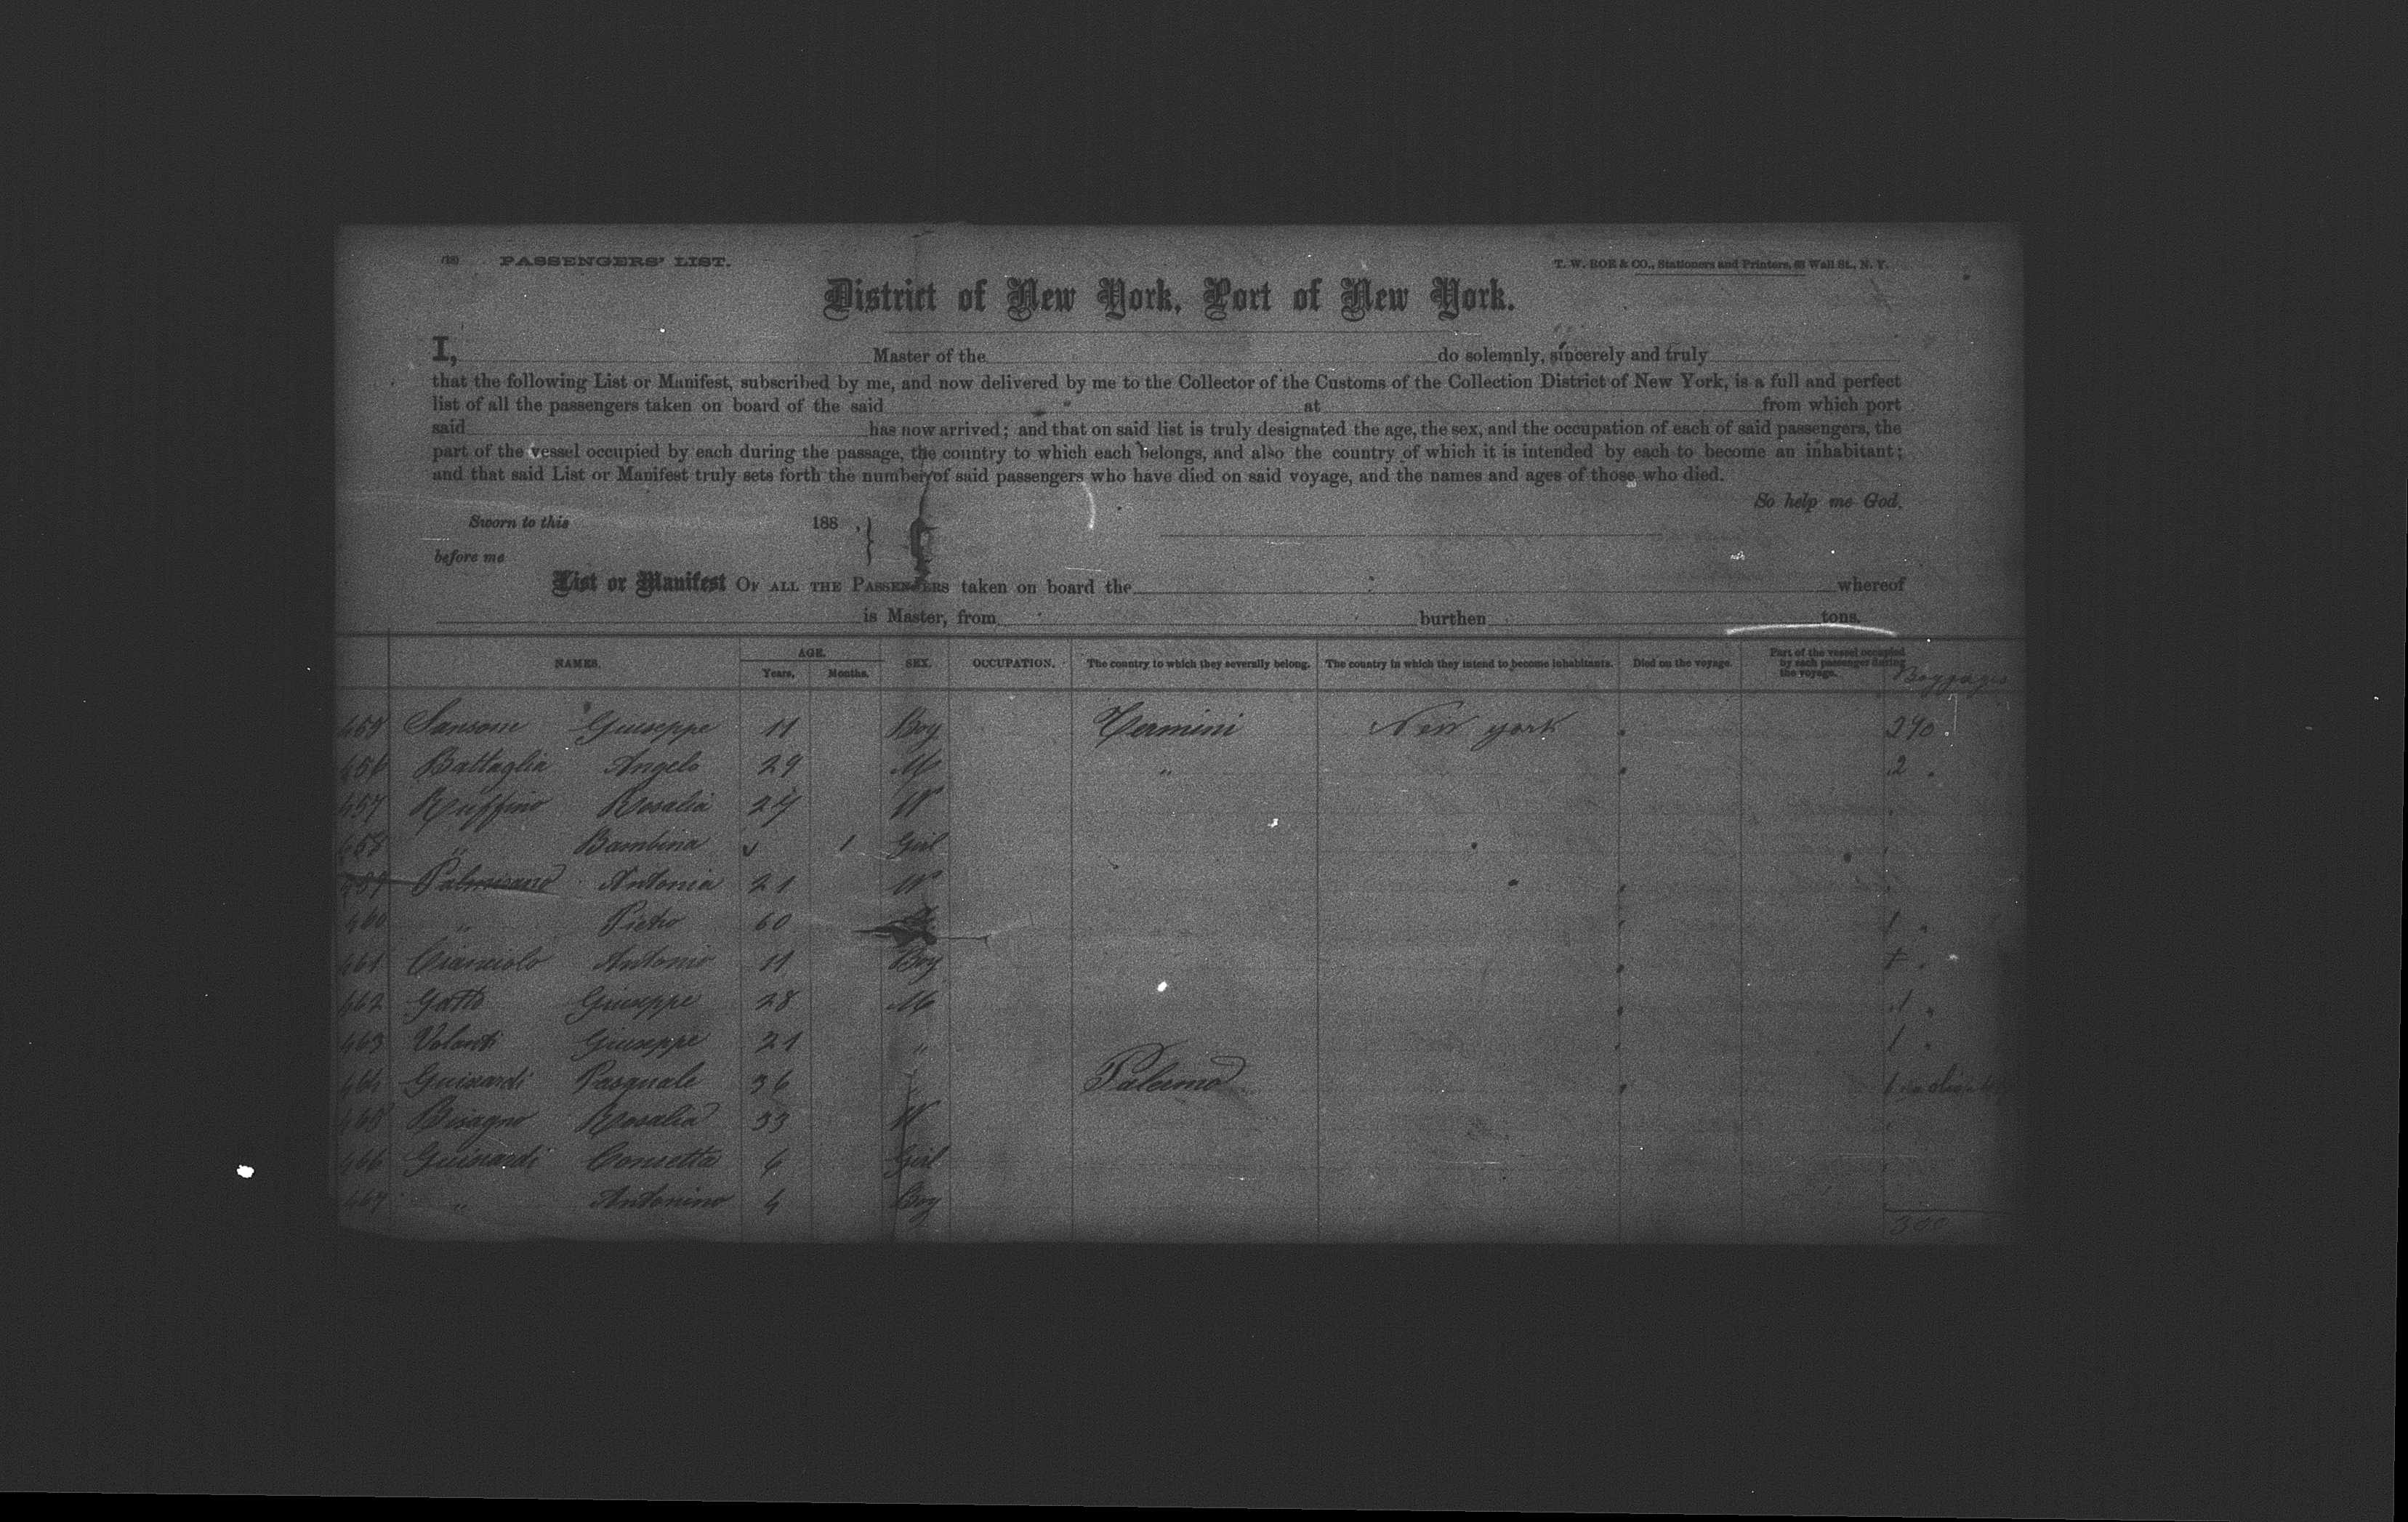 PASSENGERS' LIST.
T. W. ROE & CO., Stationers and Printers, 68 Wall St., N. Y.
District of New York, Port of New York.
I, Master of the do solemnly, sincerely and truly
that the following List or Manifest, subscribed by me, and now delivered by me to the Collector of the Customs of the Collection District of New York, is a full and perfect
list of all the passengers taken on board of the said at from which port
said has now arrived; and that on said list is truly designated the age, the sex, and the occupation of each of said passengers, the
part of the vessel occupied by each during the passage, the country to which each belongs, and also the country of which it is intended by each to become an inhabitant;
and that said List or Manifest truly sets forth the number of said passengers who have died on said voyage, and the names and ages of those who died.
So help me God.
Sworn to this 188 ,
before me
List or Manifest OF ALL THE PASSENGERS taken on board the whereof
is Master, from burthen tons.
NAMES. AGE. Years, Months. SEX. OCCUPATION. The country to which they severally belong. The country in which they intend to become inhabitants. Died on the voyage. Part of the vessel occupied by each passenger during the voyage.
455 Sansone Giuseppe 11 Boy Termini New york 290
456 Battaglia Angelo 29 M " 2 "
457 Ruffino Rosalia 27 W
458 " Bambina 1 Girl
459 Palmisano Antonia 21 W
460 " Pietro 60 1 "
461 Cianciolo Antonio 11 Boy
462 Gatto Giuseppe 28 M 1 "
463 Volanti Giuseppe 21 " 1 "
464 Guisardi Pasquale 36 " Palermo 1
465 Bisagno Rosalia 33 W
466 Guisardi Concetta 6 Girl
467 " Antonino 4 Boy
300